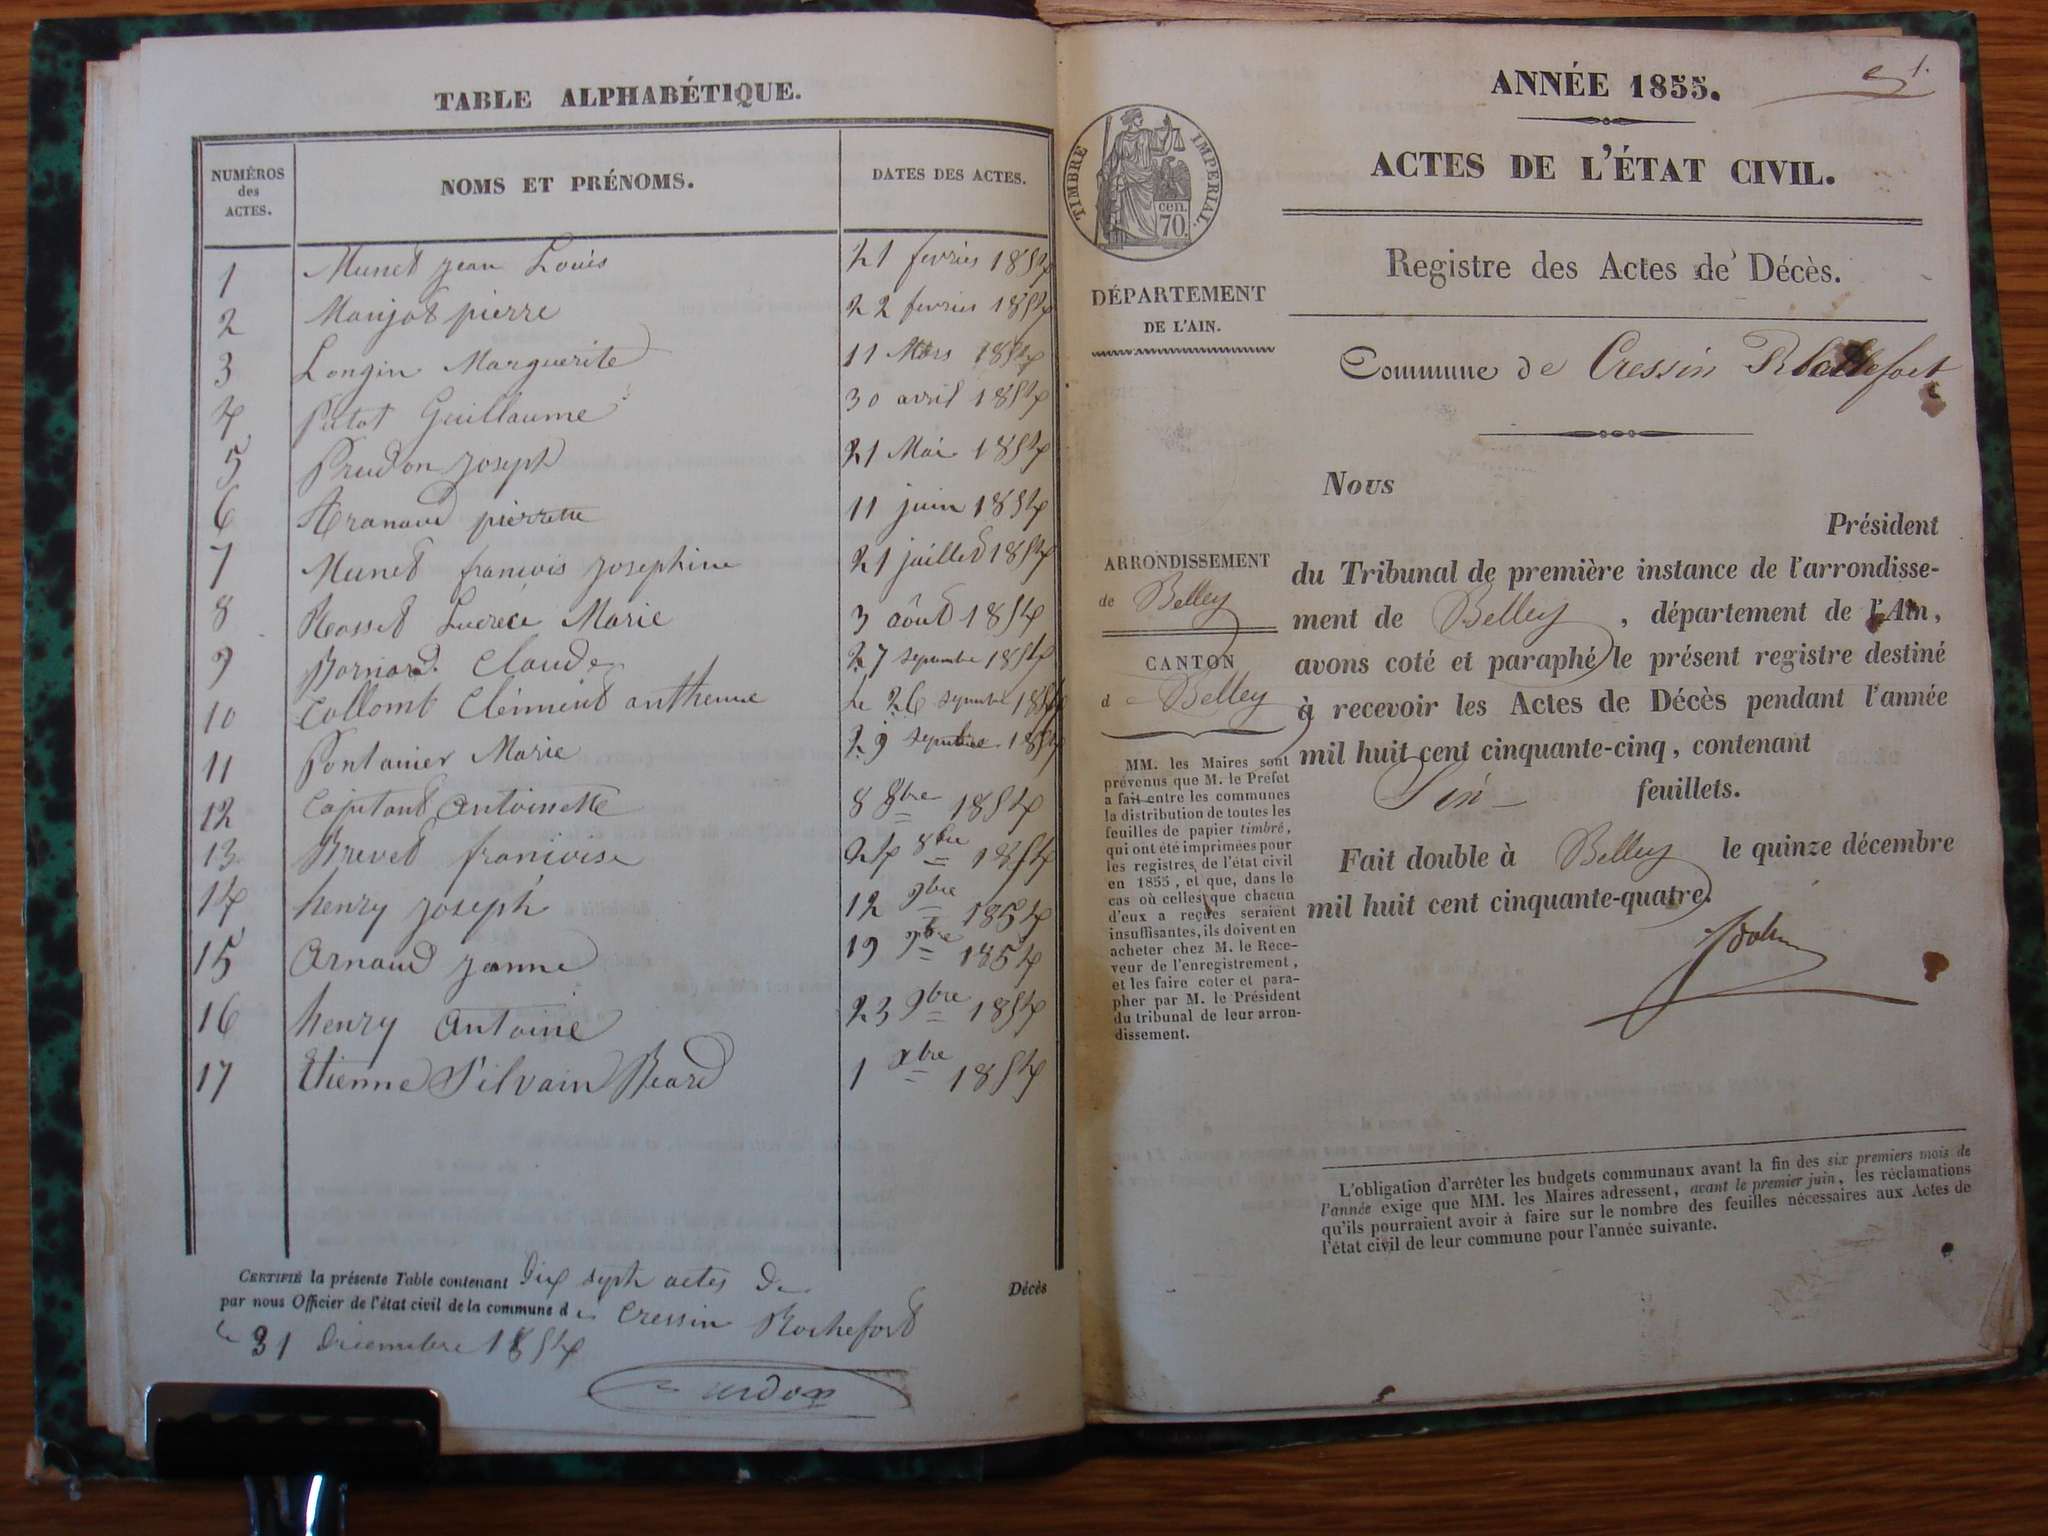 TABLE ALPHABÉTIQUE.
NUMÉROS des ACTES. NOMS ET PRÉNOMS. DATES DES ACTES.
1 Munet jean Louis 21 fevrier 1854
2 Manjot pierre 22 fevrier 1854
3 Longin Marguerite 11 Mars 1854
4 Putot Guillaume 30 avril 1854
5 Prudon joseph 21 Mai 1854
6 pierrette 11 juin 1854
7 Munet francois josephine 21 juillet 1854
8 Lucrece Marie 3 août 1854
9 Bornard Claude 27 septembre 1854
10 Collomb Clément anthenne le 26 septembre 1854
11 Pontanier Marie 29 septembre 1854
12 Capitant antoinette 8 8bre 1854
13 Brevet francoise 24 8bre 1854
14 henry joseph 12 9bre 1854
15 arnaud janne 19 9bre 1854
16 henry antoine 23 9bre 1854
17 Etienne Silvain Beard 1 xbre 1854
CERTIFIÉ la présente Table contenant Dix septh actes De Décès
par nous Officier de l'état civil de la commune de Cressin Rochefort
le 31 Decembre 1854
ANNÉE 1855.
1.
ACTES DE L'ÉTAT CIVIL.
TIMBRE IMPERIAL.
70. cen.
Registre des Actes de Décès.
DÉPARTEMENT
DE L'AIN.
Commune de Cressin Rochefort
Nous
Président
du Tribunal de première instance de l'arrondisse-
ment de Belley, département de l'Ain,
avons coté et paraphé le présent registre destiné
à recevoir les Actes de Décès pendant l'année
mil huit cent cinquante-cinq, contenant
feuillets.
Fait double à Belley le quinze décembre
mil huit cent cinquante-quatre.
ARRONDISSEMENT
de Belley
CANTON
de Belley
MM. les Maires sont
prévenus que M. le Préfet
a fait entre les communes
la distribution de toutes les
feuilles de papier timbré,
qui ont été imprimées pour
les registres de l'état civil
en 1855, et que, dans le
cas où celles que chacun
d'eux a reçues seraient
insuffisantes, ils doivent en
acheter chez M. le Rece-
veur de l'enregistrement,
et les faire coter et para-
pher par M. le Président
du tribunal de leur arron-
dissement.
L'obligation d'arrêter les budgets communaux avant la fin des six premiers mois de
l'année exige que MM. les Maires adressent, avant le premier juin, les réclamations
qu'ils pourraient avoir à faire sur le nombre des feuilles nécessaires aux Actes de
l'état civil de leur commune pour l'année suivante.